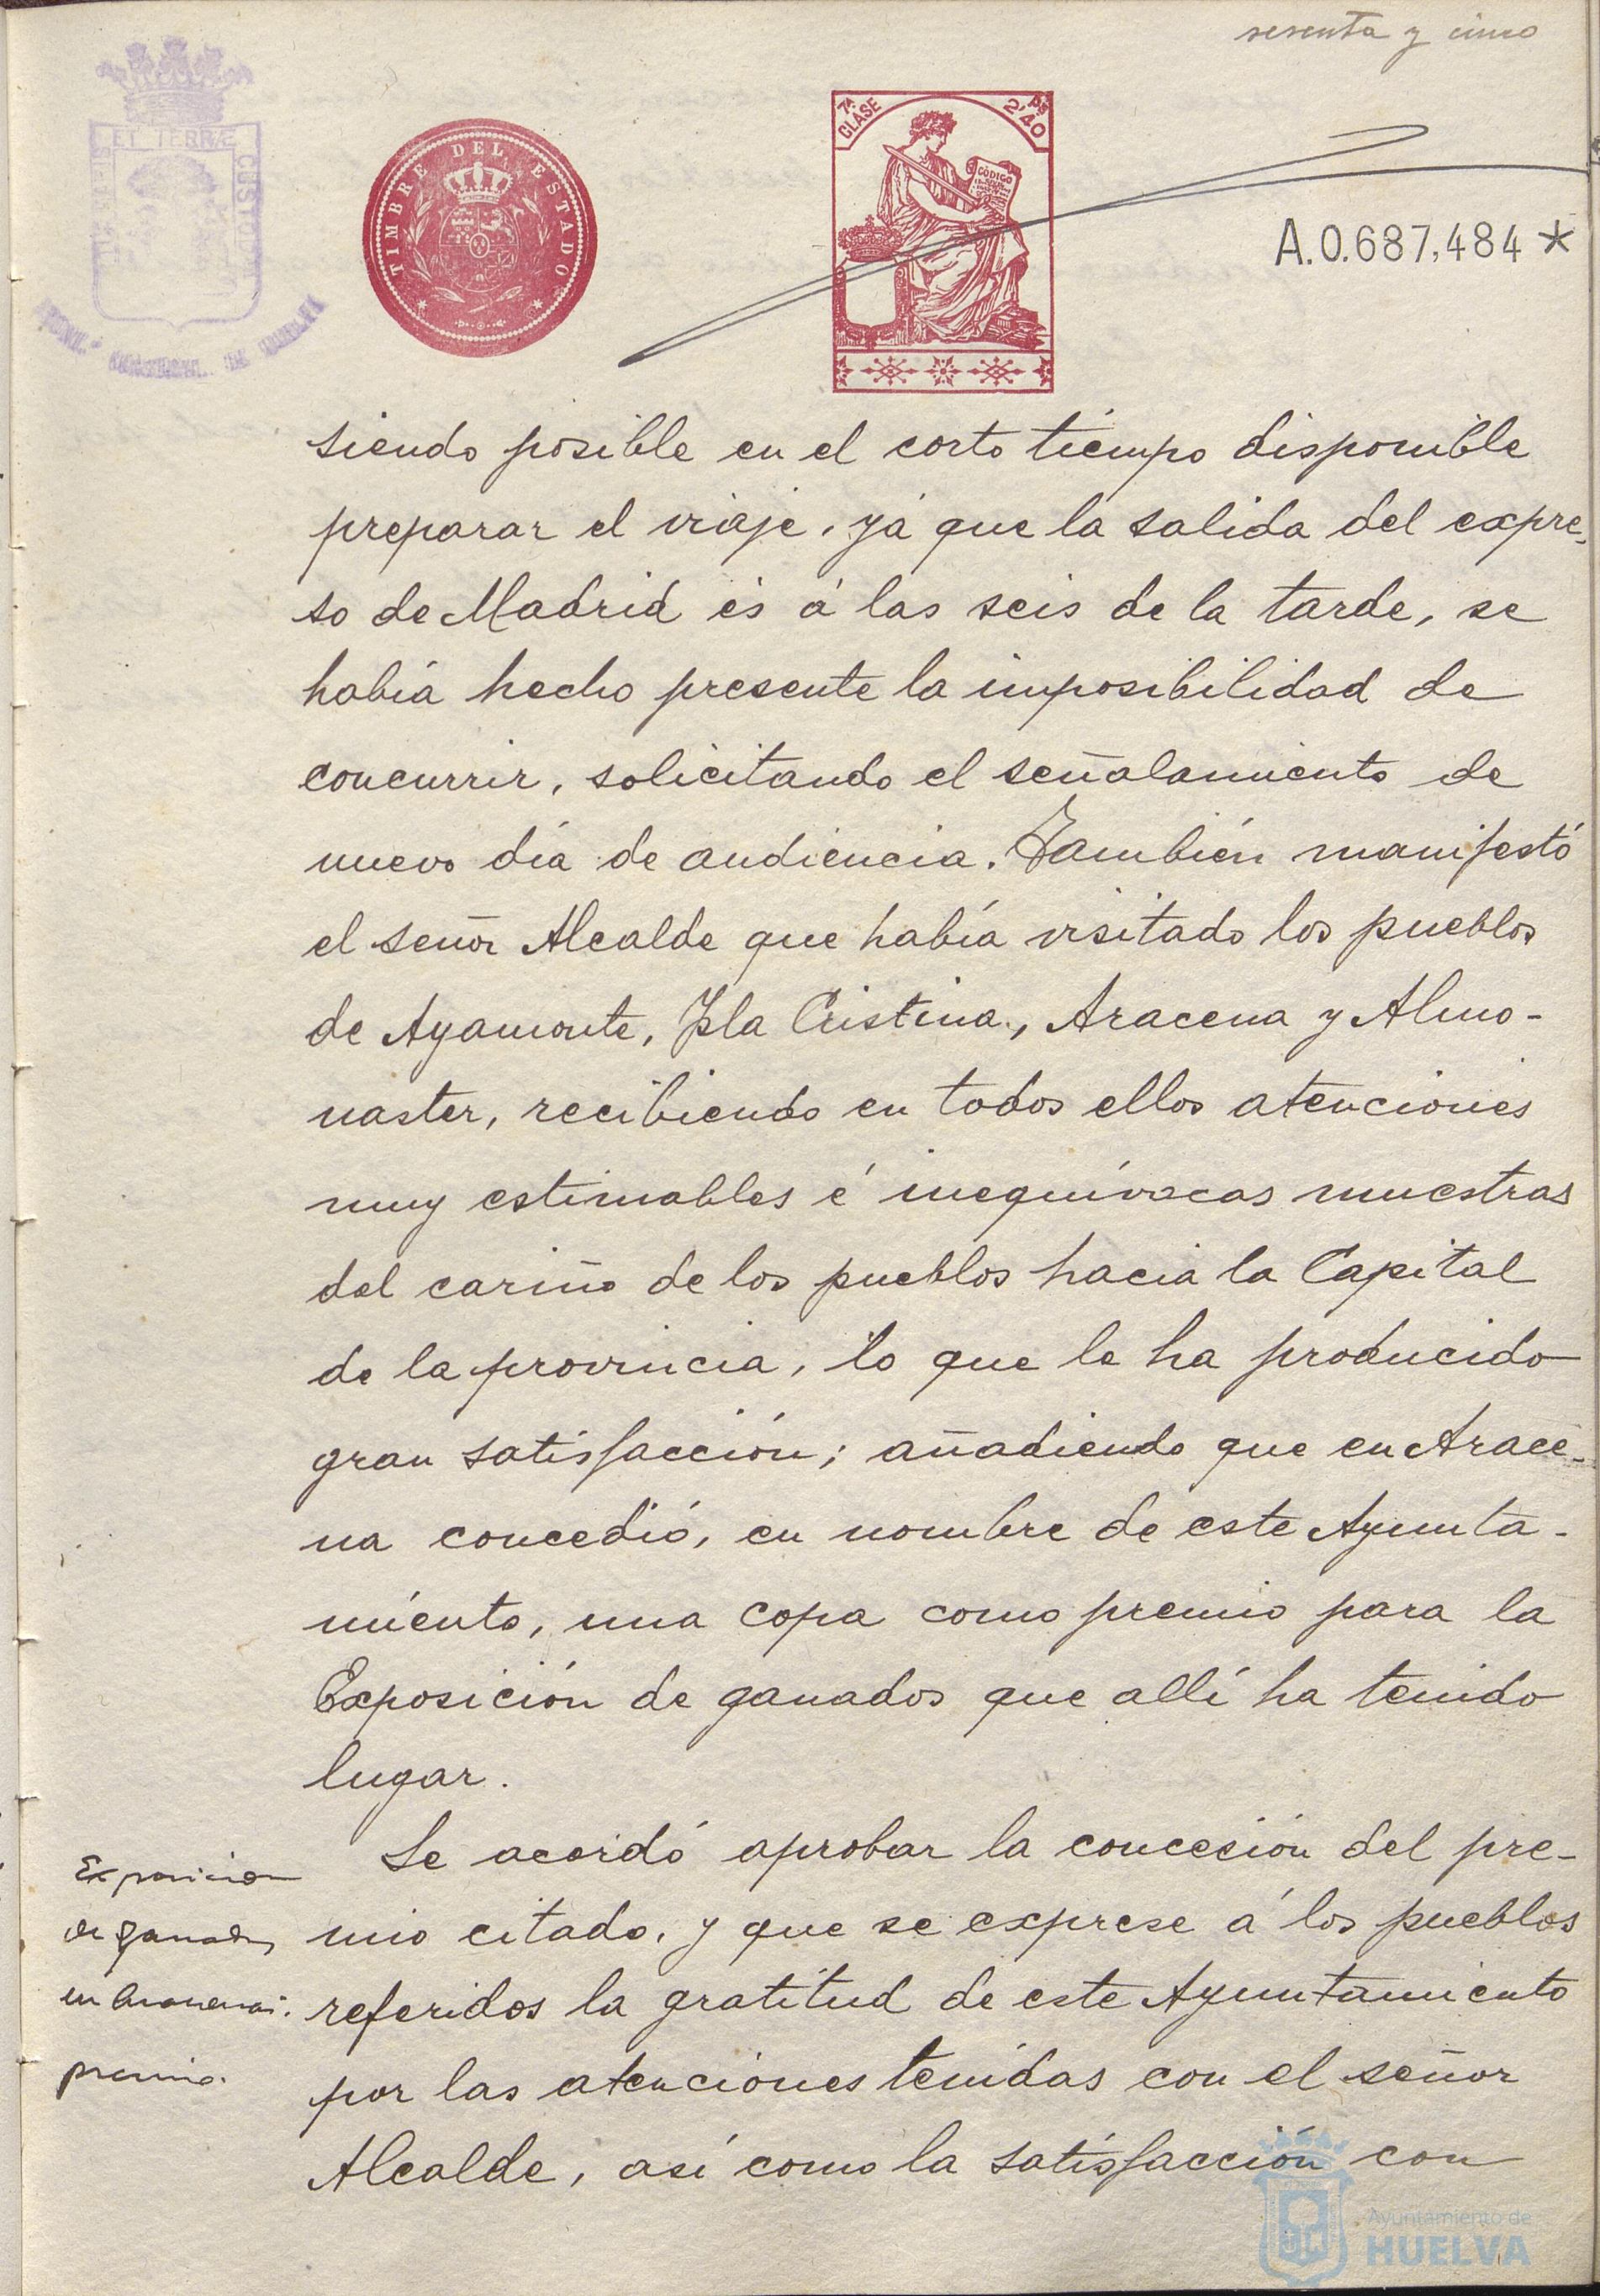 sesenta y cinco
ET TERRÆ
CUSTOD
TIMBRE DEL ESTADO
7ª CLASE
2'40 Pts
CÓDIGO
A.0.687,484*
siendo posible en el corto tiempo disponible
preparar el viaje, yá que la salida del expre-
so de Madrid és á las seis de la tarde, se
había hecho presente la imposibilidad de
concurrir, solicitando el señalamiento de
nuevo día de audiencia. También manifestó
el señor Alcalde que había visitado los pueblos
de Ayamonte, Isla Cristina, Aracena y Almo-
naster, recibiendo en todos ellos atenciones
muy estimables é inequívocas muestras
del cariño de los pueblos hacia la Capital
de la provincia, lo que le ha producido
gran satisfacción; añadiendo que en Arace-
na concedió, en nombre de este Ayunta-
miento, una copa como premio para la
Exposición de ganados que allí ha tenido
lugar.
Se acordó aprobar la concesión del pre-
mio citado, y que se exprese á los pueblos
referidos la gratitud de este Ayuntamiento
por las atenciones tenidas con el señor
Alcalde, así como la satisfacción con
Exposicion
de ganados
en Aracena.
premio.
Ayuntamiento de
HUELVA